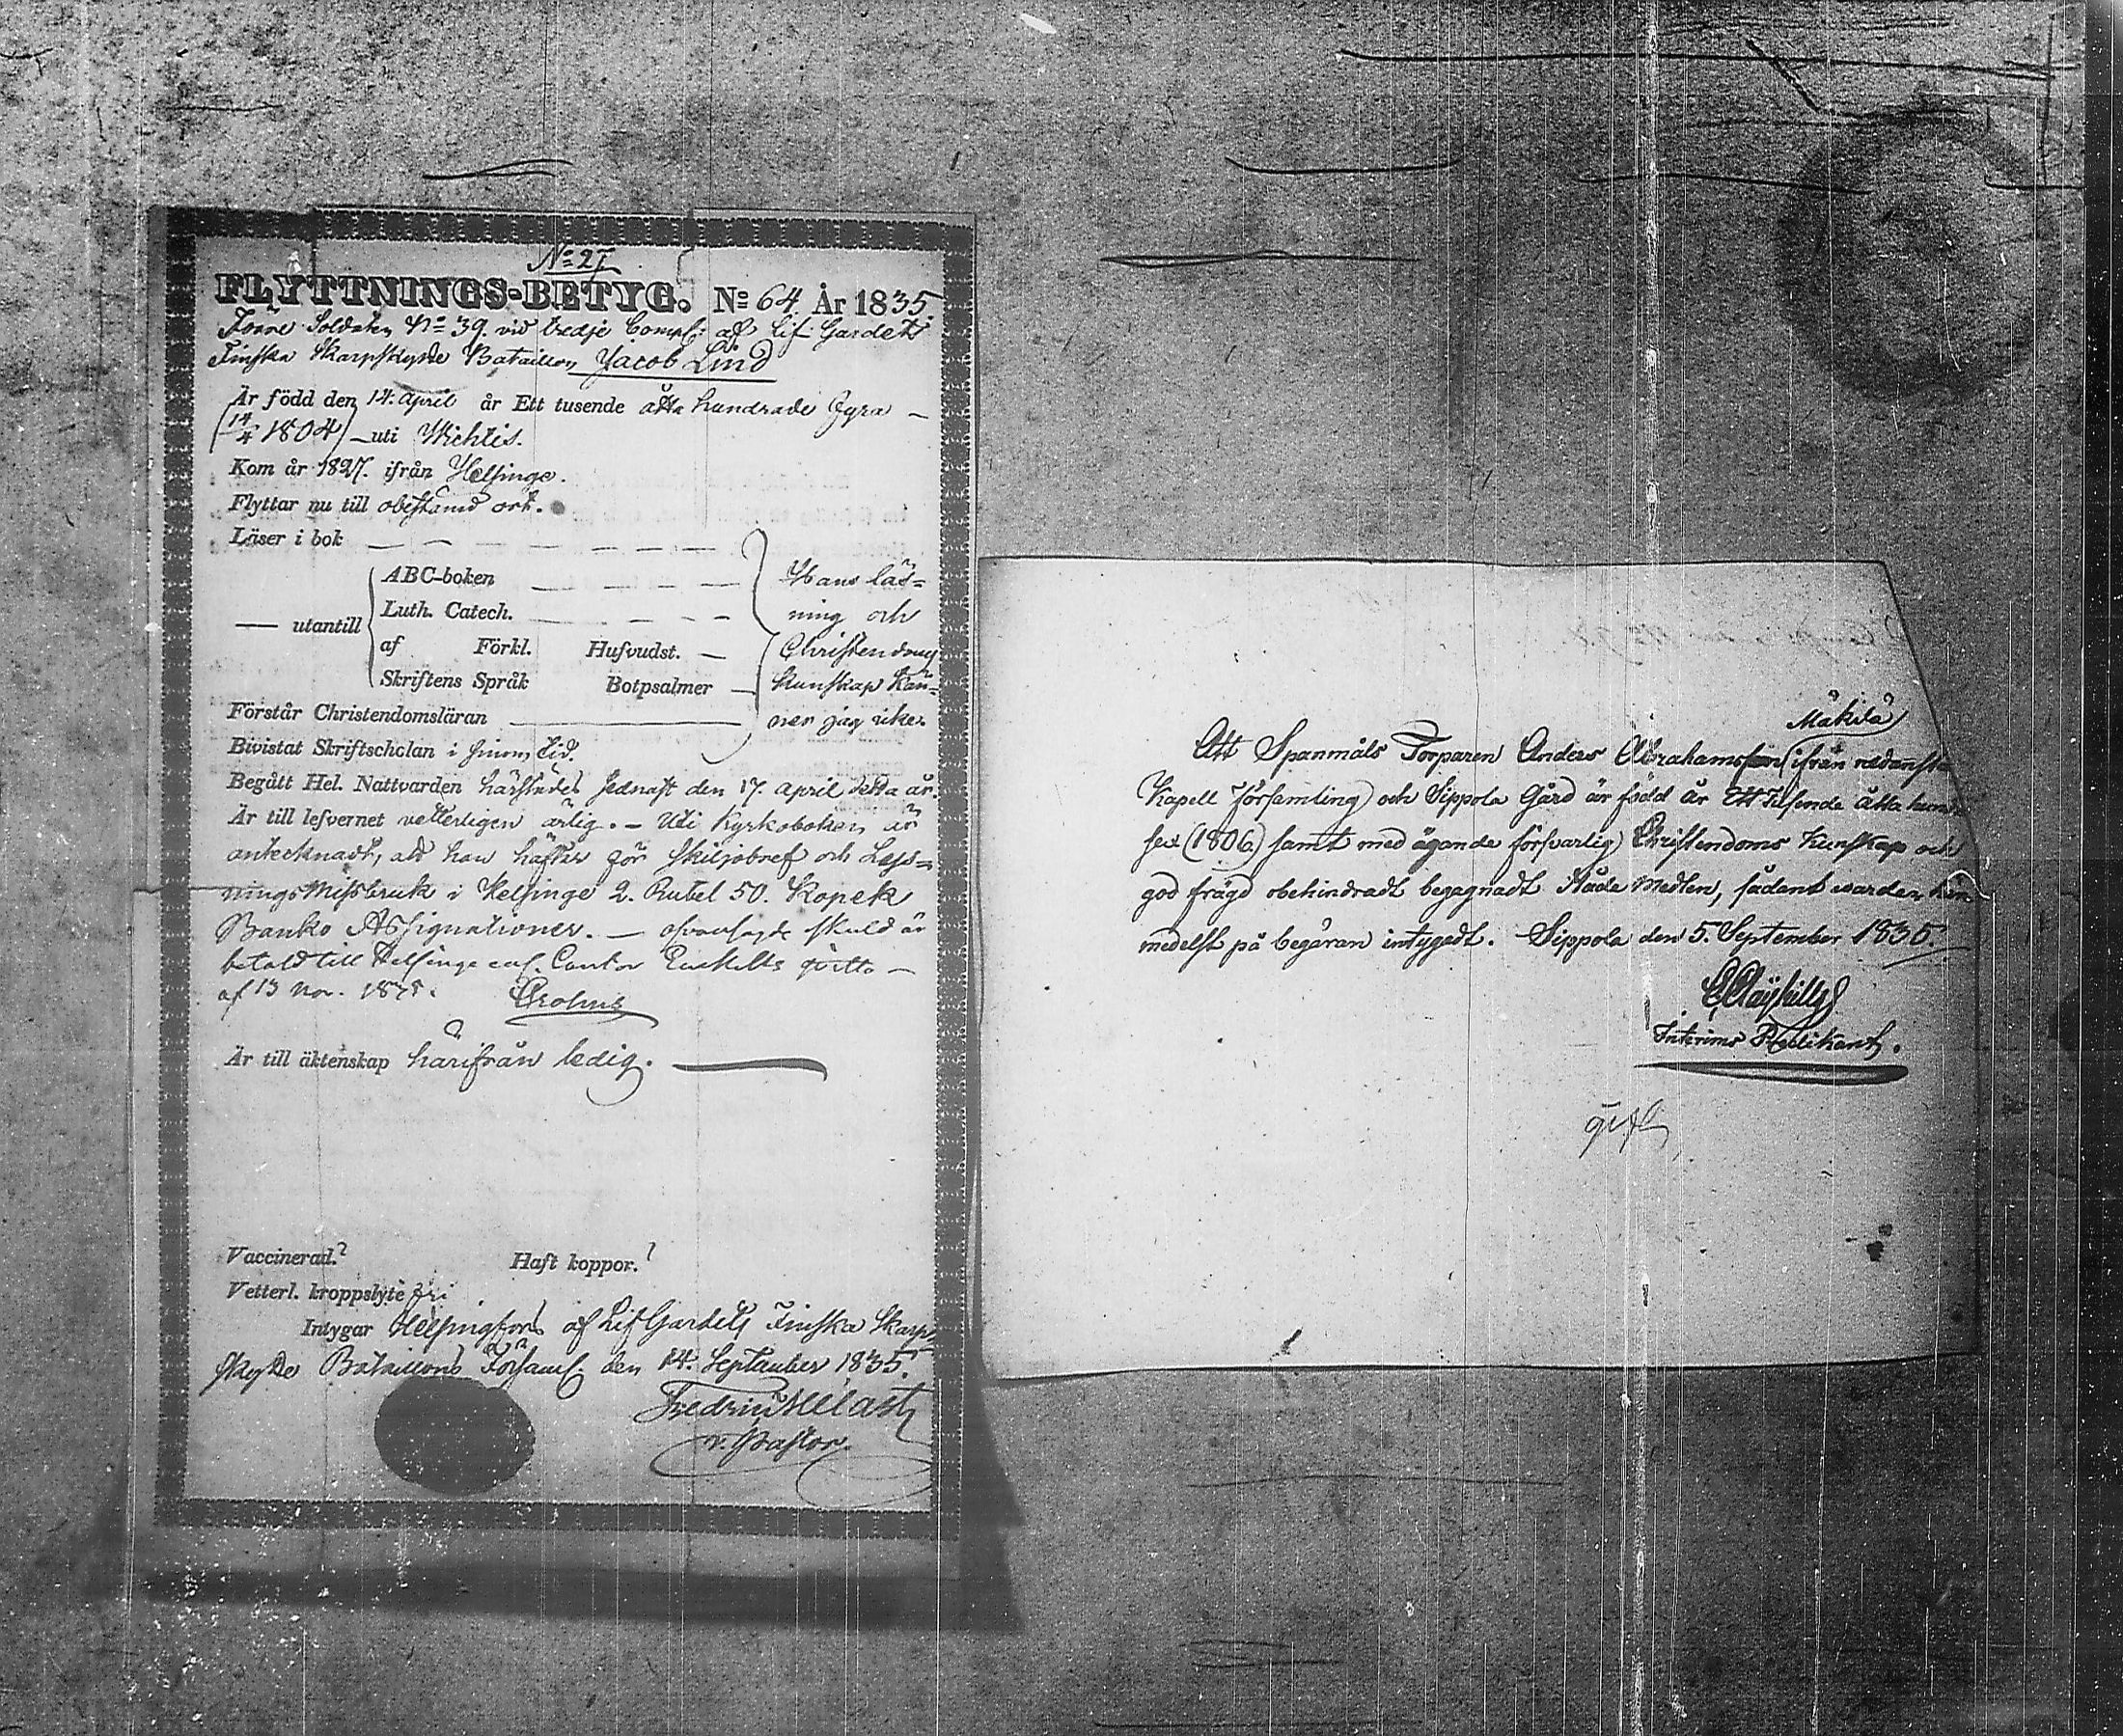 No 27
FLYTTNINGS-BETYG. No 64. År 1835.
Förre Soldaten No 39. vid tredje Comp: af Lif Gardets
Finska Skarpskytte Bataillon, Jacob Lind
Är född den 14. April år Ett tusende åtta hundrade fyra –
(14/4 1804) – uti Wichtis.
Kom år 1827. ifrån Helsinge.
Flyttar nu till obestämd ort.
Läser i bok
ABC-boken
Luth. Catech.
— utantill
af Förkl. Hufvudst. —
Skriftens Språk Botpsalmer —
Hans läs=
ning och
Christendoms
kunskap kän=
ner jag icke.
Förstår Christendomsläran
Bivistat Skriftscholan i sinom tid.
Begått Hel. Nattvarden härstädes sednast den 17. April detta år.
Är till lefvernet vetterligen ärlig. – Uti Kyrkoboken är
antecknadt, att han häftar för skiljobref och Lägs=
nings Missbruk i Helsinge 2. Rubel 50. Kopek
Banko Assignationer. — ofvansagde skuld är
betald till Helsinge enl. Cantor qvitto –
af 13 Nov. 1835.
Är till äktenskap härifrån ledig. —
Vaccinerad. ? Haft koppor. ?
Vetterl. kroppslyte fri
Intygar Helsingfors af Lif Gardets Finska Skarp=
skytte Bataillons Församl. den 14. September 1835.
v. Pastor.
Mäkilä
Att Spanmåls Torparen Anders Abrahamsson ifrån nedanstå
Kapell Församling och Sippola Gård är född år Ett Tusende åtta hund
sex (1806) samt med ägande försvarlig Christendoms Kunskap och
god frägd obehindradt begagnadt Nåde Medlen, sådant warder här
medelst på begäran intygadt. Sippola den 5. September 1835.
Interims Predikant.